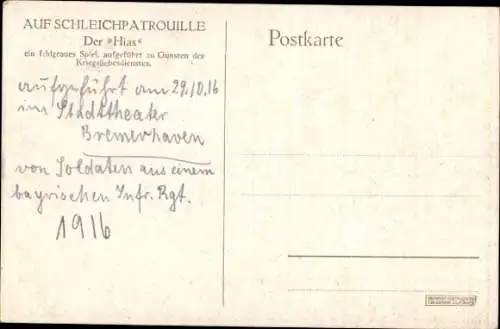 AUF SCHLEICHPATROUILLE
Der »Hias«
ein feldgraues Spiel, aufgeführt zu Gunsten des
Kriegsliebesdienstes.
Postkarte
aufgeführt am 29.10.16
im Stadttheater
Bremerhaven
von Soldaten aus einem
bayrischen Infr. Rgt.
1916